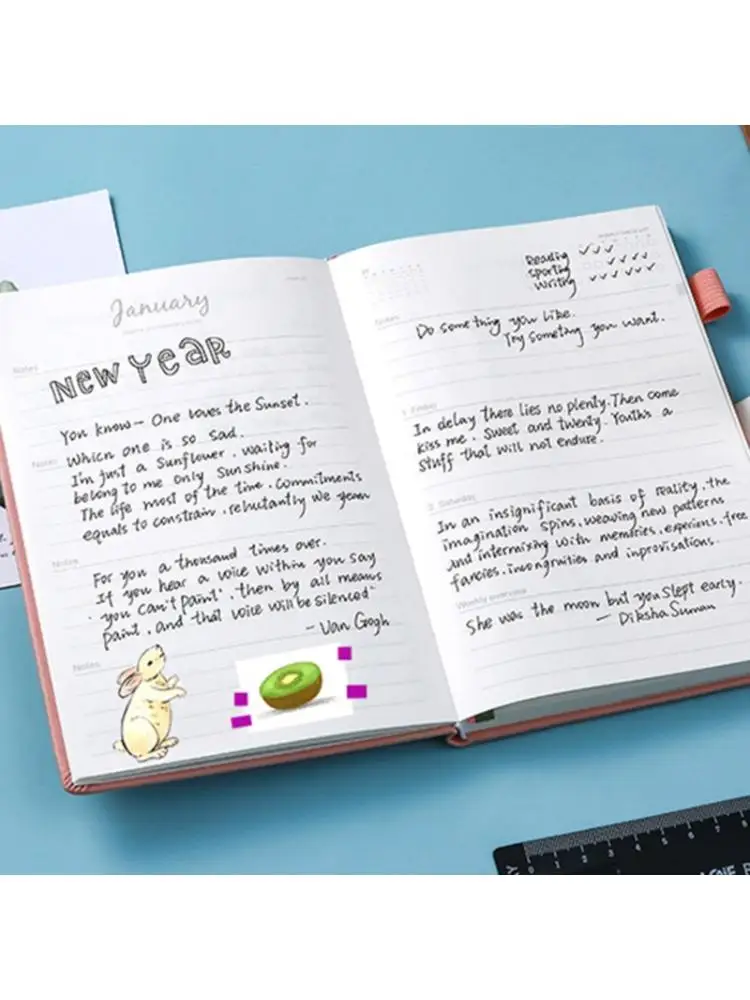 January
Notes
NEW YEAR
You know — One loves the Sunset.
Notes
Which one is so sad.
I'm just a Sunflower, waiting for
belong to me only Sunshine.
The life most of the time. Commitments
equals to constrain, reluctantly we yearn
Notes
For you a thousand times over.
If you hear a voice within you say
"you can't paint", then by all means
paint, and that voice will be silenced
– Van Gogh
Notes
Reading
Sporting
Writing
Notes
Do something you like.
Try someting you want.
1 Friday
In delay there lies no plenty. Then come
kiss me, sweet and twenty. Youth's a
stuff that will not endure.
2 Saturday
In an insignificant basis of reality, the
imagination spins, weaving new patterns
and intermixing with memories, experiens, free
fancies, incongruities and inprovisations.
Weekly overview
She was the moon but you slept early.
— Diksha Suman
1 2 3 4 5 6 7 8